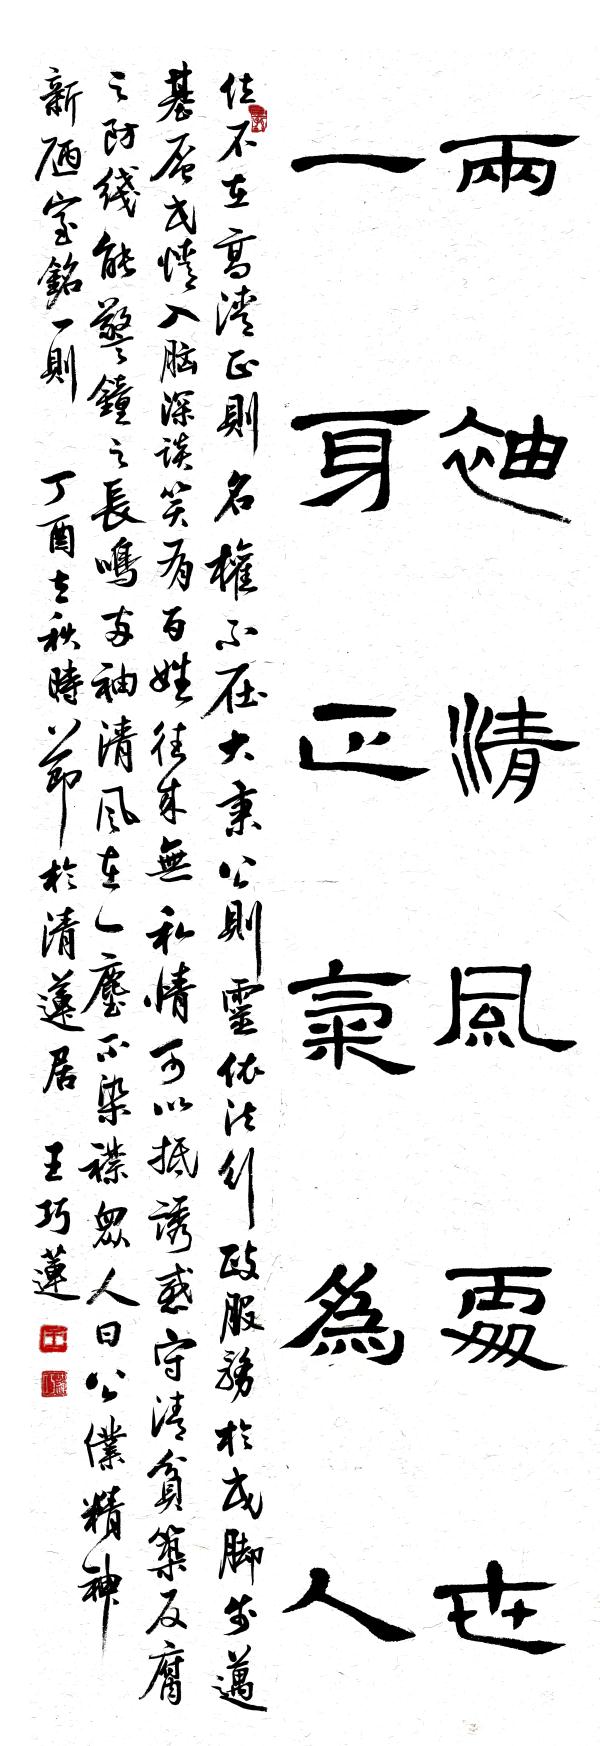 兩袖清風處世
一身正氣為人
位不在高清正則名權不在大秉公則靈依法行政服務於民脚步邁
基層民情入脑深談笑有百姓往来無私情可以抵誘惑守清貧築反腐
之防綫能警鐘之長鳴兩袖清風在一塵不染襟眾人曰公僕精神
新陋室銘一則 丁酉立秋時節於清蓮居 王巧蓮